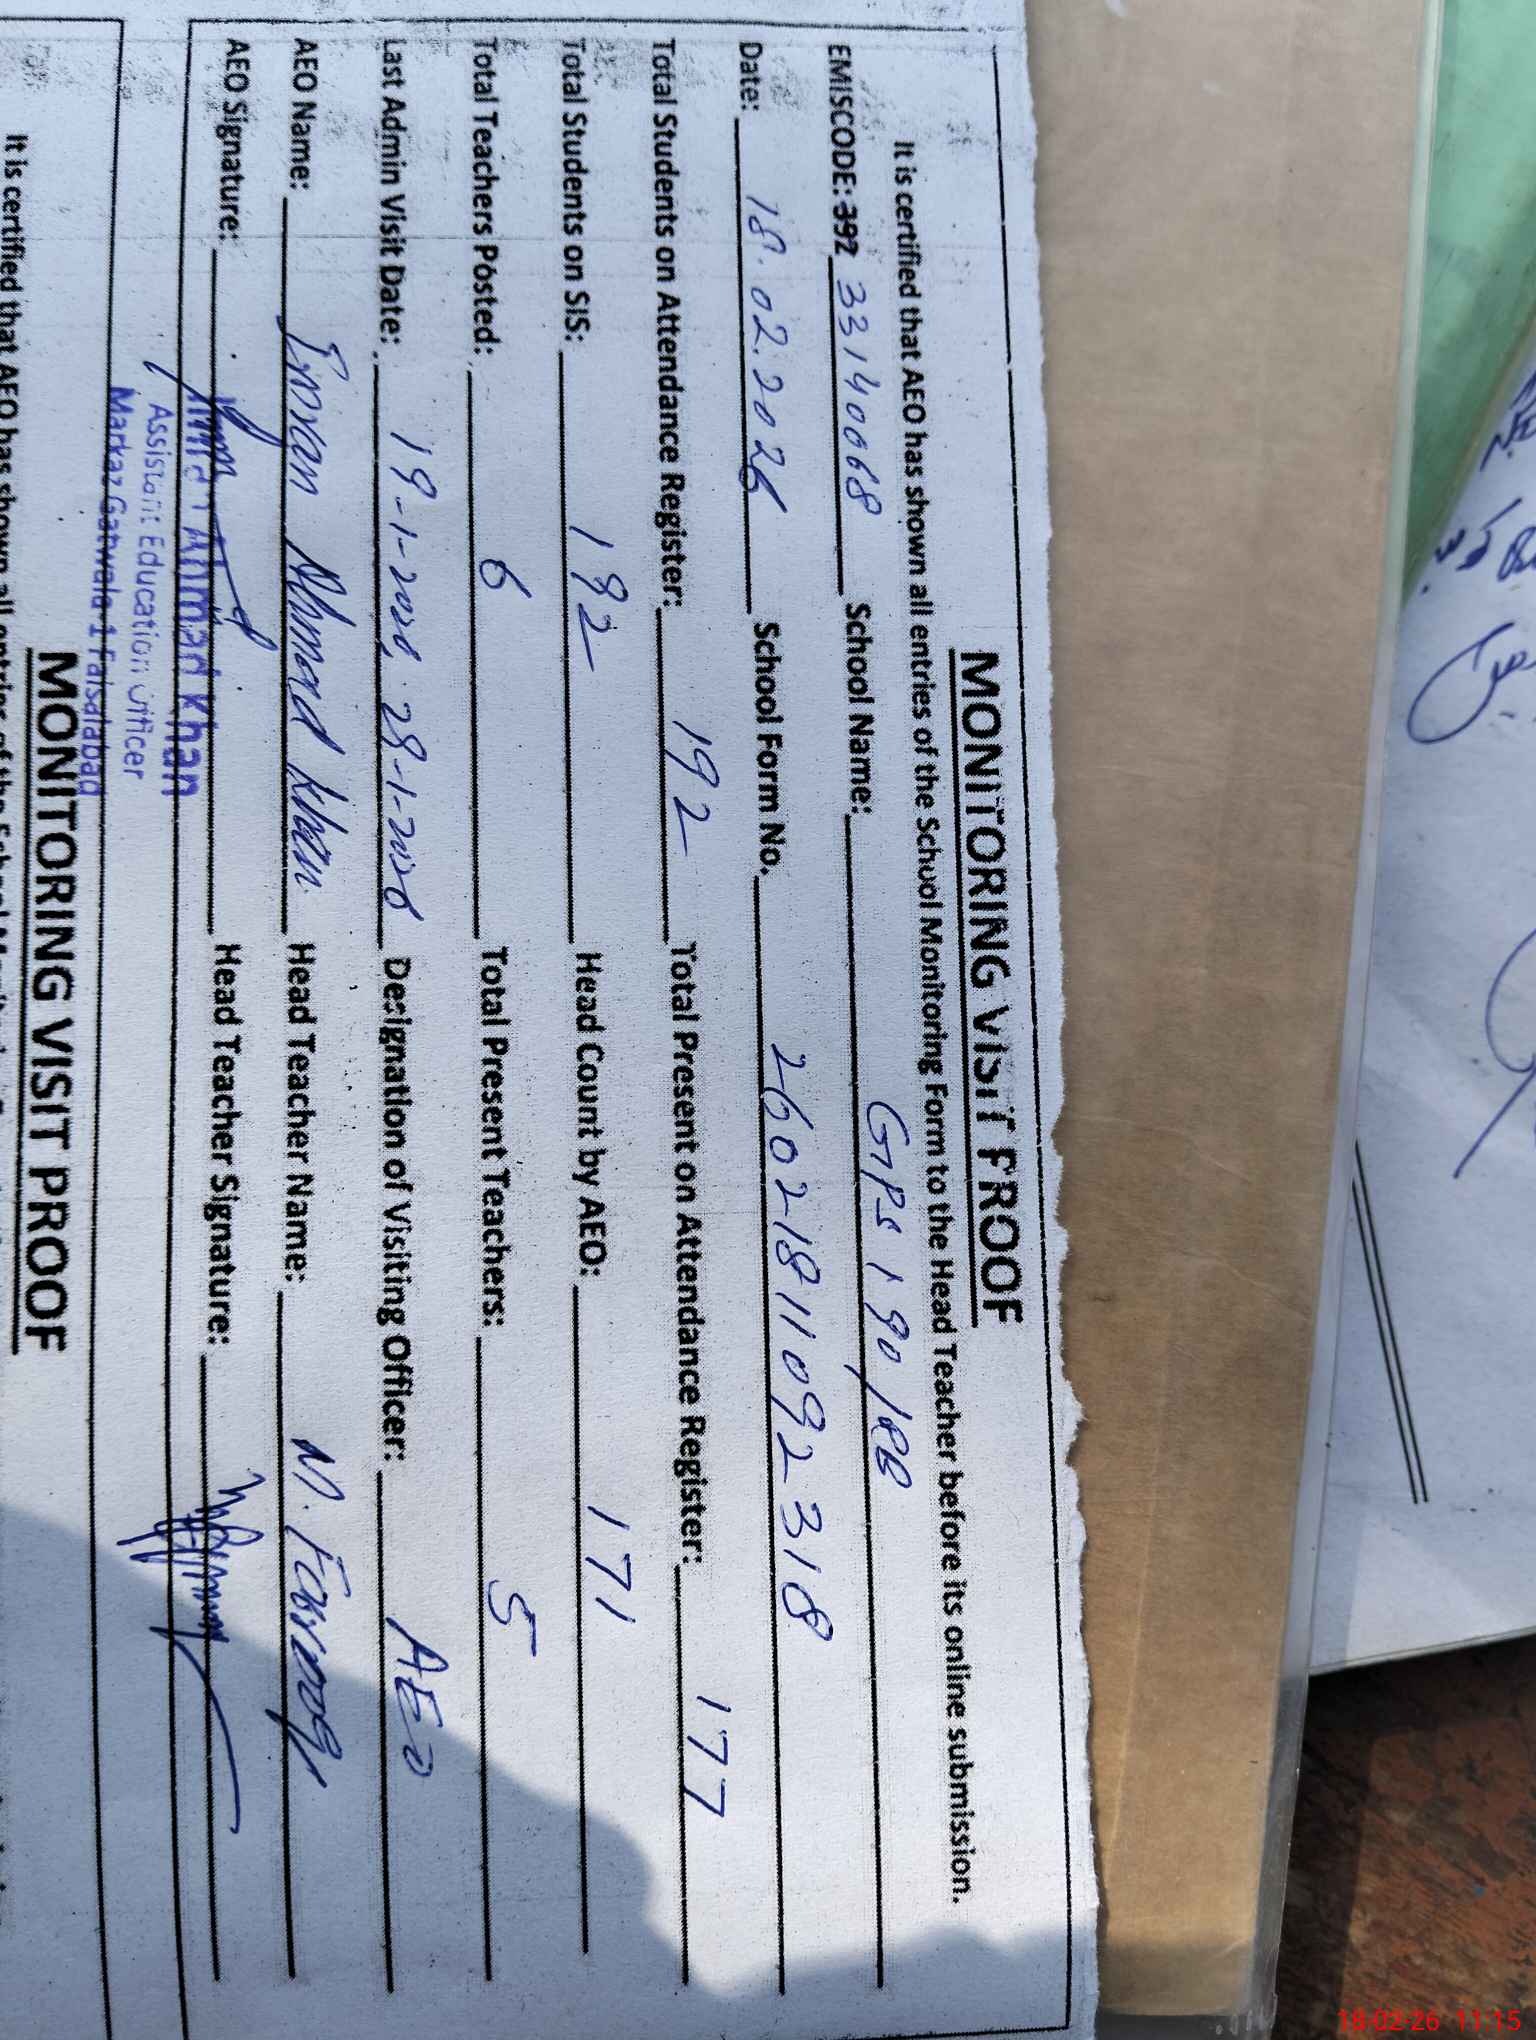 MONITORING VISIT PROOF
It is certified that AEO has shown all entries of the School Monitoring Form to the Head Teacher before its online submission.
EMISCODE: 392 33140068 School Name: GPS 190/RB
Date: 18.02.2026 School Form No. 26021811092318
Total Students on Attendance Register: 192 Total Present on Attendance Register: 177
Total Students on SIS: 192 Head Count by AEO: 171
Total Teachers Posted: 6 Total Present Teachers: 5
Last Admin Visit Date: 19-1-2026, 28-1-2026 Designation of Visiting Officer: AEO
AEO Name: Imran Ahmad Khan Head Teacher Name: M. Farooq
AEO Signature: Head Teacher Signature:
Ahmad Khan
Assistant Education Officer
Markaz Gatwala-1 Faisalabad
MONITORING VISIT PROOF
It is certified that AEO has shown all entries of the School
18-02-26 11:15